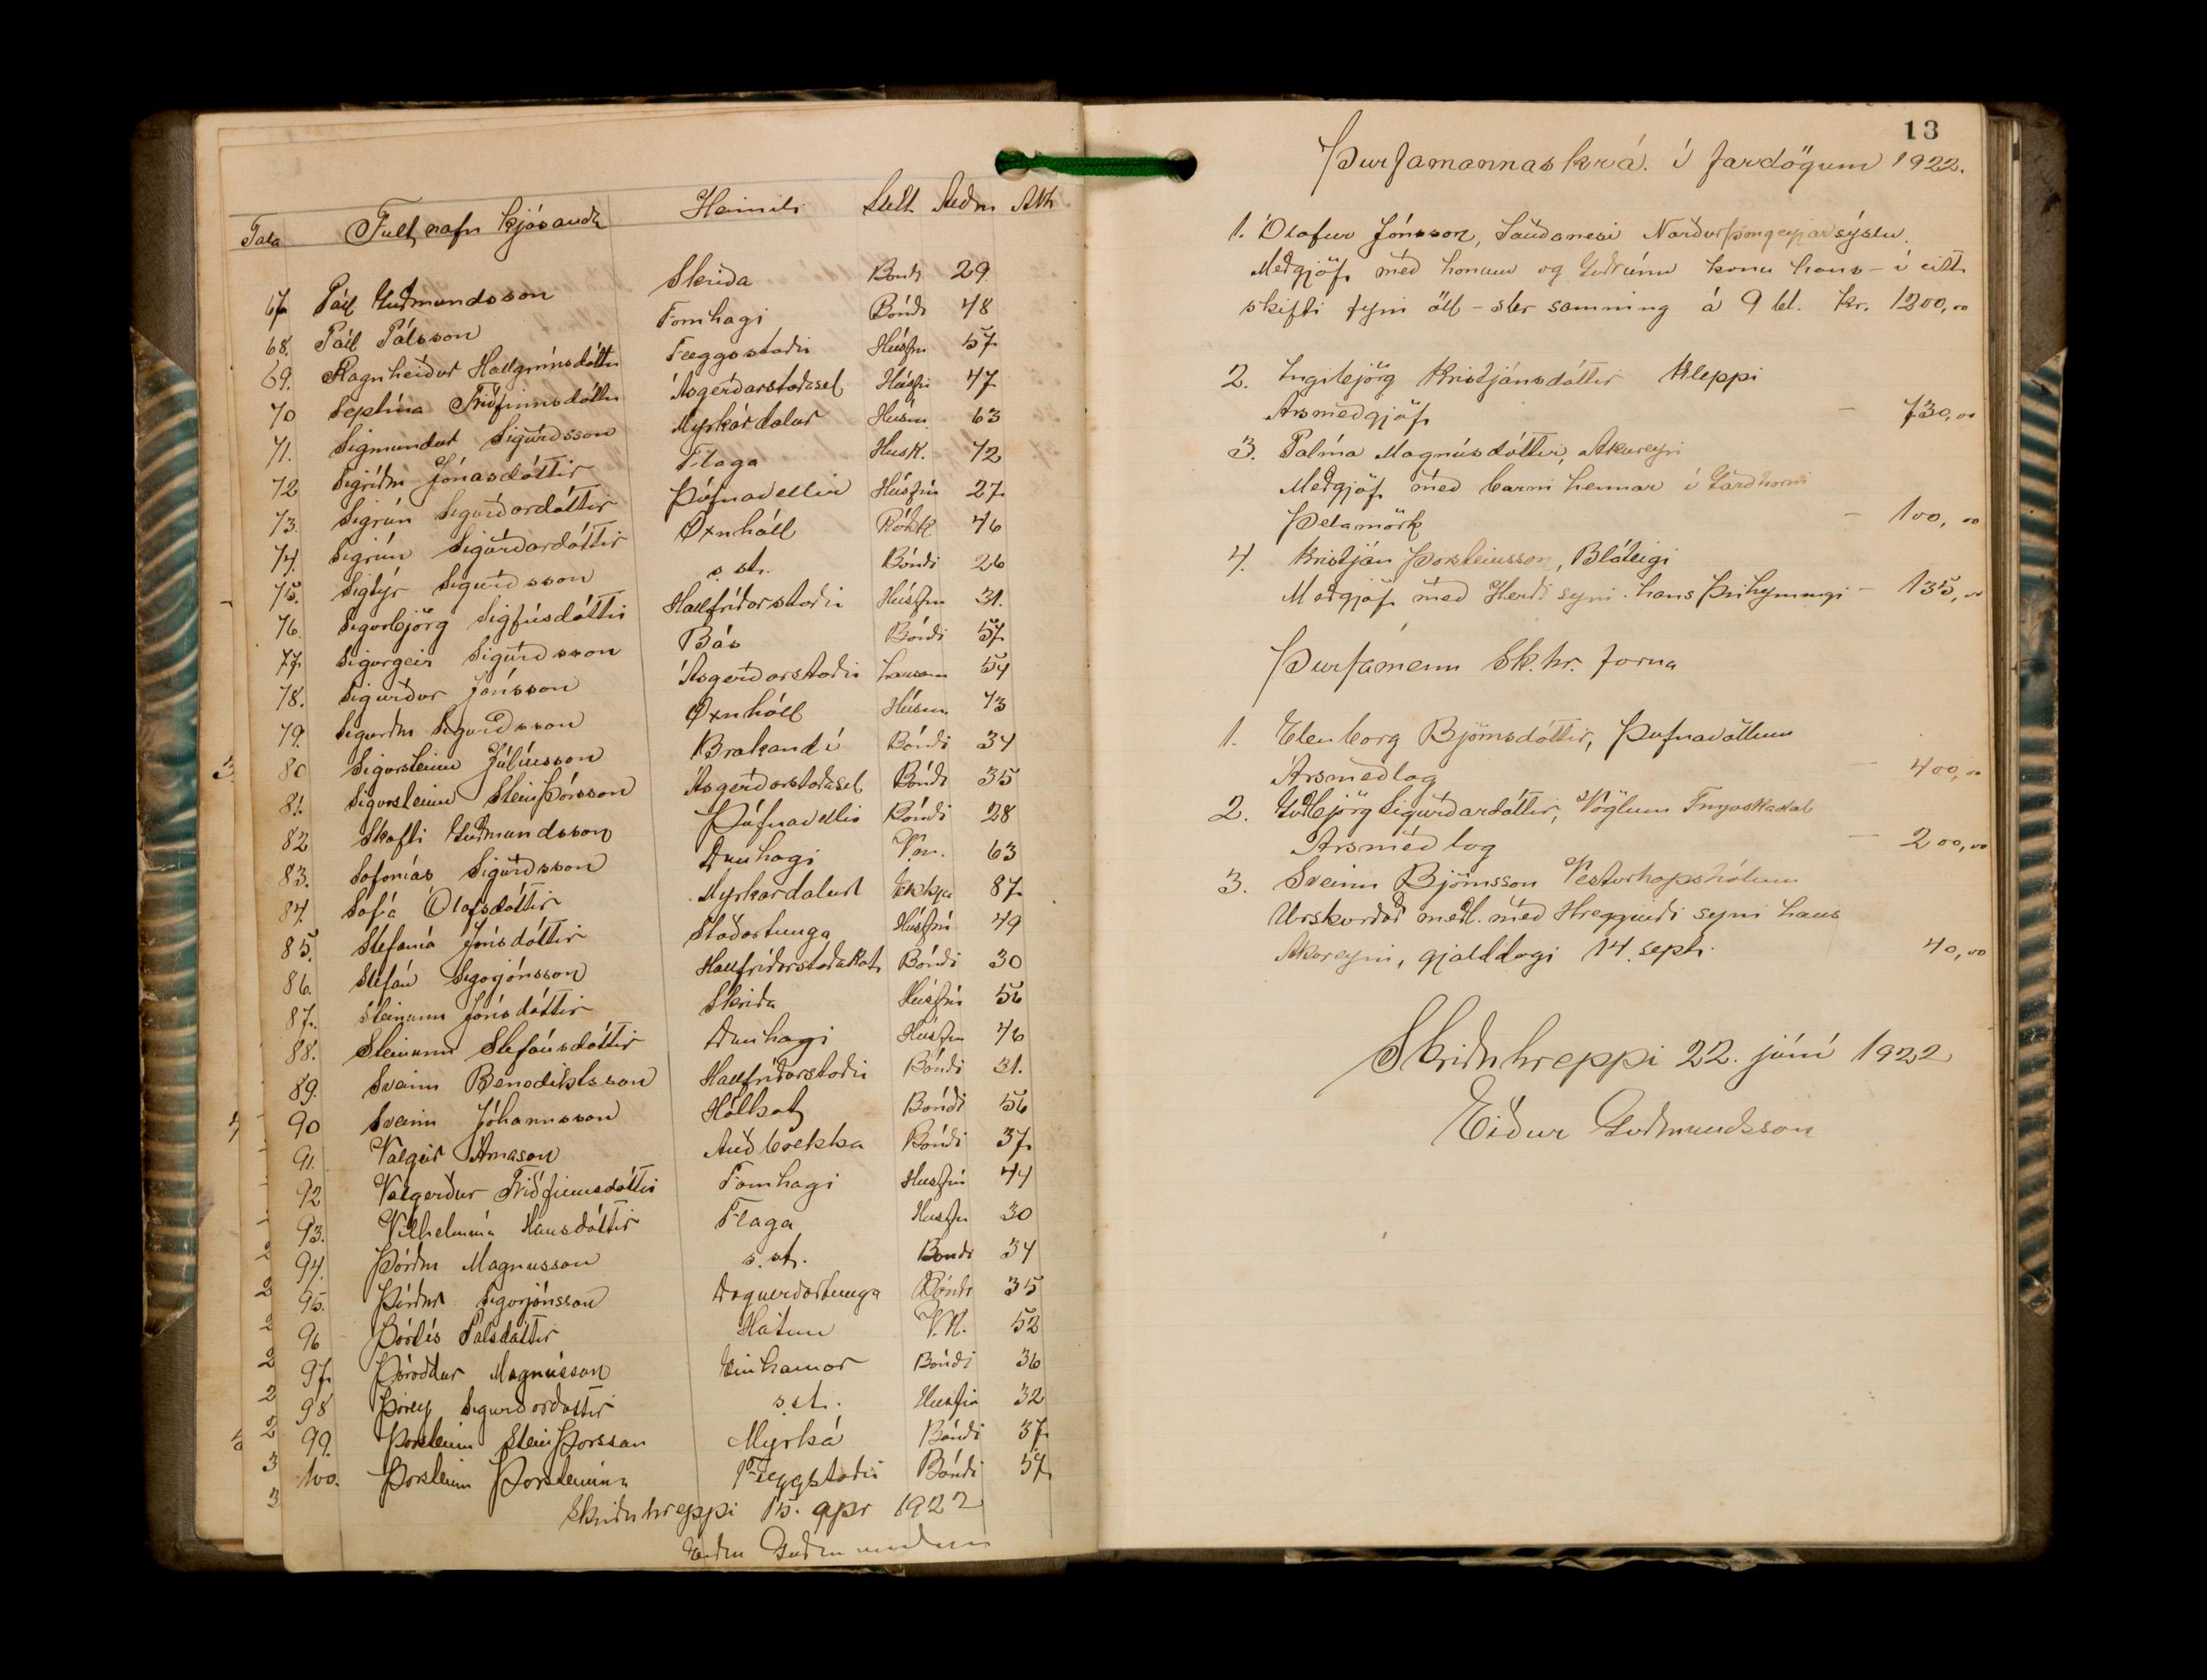 Tala Fullt nafn kjósanda Heimili Stétt Aldur Ath
67. Páll Guðmundsson Skriða Bóndi 29
68. Páll Pálsson Fornhagi Bóndi 48
69. Ragnheiður Hallgrímsdóttir Flöggustaðir Húsfrú 57
70 Septína Friðfinnsdóttir Ásgerðarstaðasel Húsfrú 47
71. Sigmundur Sigurðsson Myrkárdalur Húsm. 63
72 Sigríður Jónasdóttir Flaga Húsk. 72
73. Sigrún Sigurðardóttir Þúfnavellir Húsfrú 27
74. Sigrún Sigurðardóttir Öxnhóll Ráðsk 46
75. Sigtýr Sigurðsson s.st. Bóndi 26
76. Sigurbjörg Sigfúsdóttir Hallfríðarstaðir Húsfrú 31.
77. Sigurgeir Sigurðsson Bás Bóndi 57
78. Sigurður Jónsson Ásgerðarstaðir lausam 54
79. Sigurður Sigurðsson Öxnhóll Húsm. 73
80 Sigursteinn Júlíusson Brakandi Bóndi 34
81. Sigursteinn Steinþórsson Ásgerðarstaðasel Bóndi 35
82 Skafti Guðmundsson Þúfnavellir Bóndi 28
83. Sófonías Sigurðsson Dunhagi V.m. 63
84. Sofía Ólafsdóttir Myrkárdalur Ekkja 87
85. Stefanía Jónsdóttir Staðartunga Húsfrú 49
86. Stefán Sigurjónsson Hallfríðarstaðakot Bóndi 30
87. Steinunn Jónsdóttir Skriða Húsfrú 56
88. Steinunn Stefánsdóttir Dunhagi Húsfrú 46
89. Sveinn Benediktsson Hallfríðarstaðir Bóndi 31.
90 Sveinn Jóhannsson Hólkot Bóndi 56
91. Valgeir Árnason Auðbrekka Bóndi 37
92 Valgerður Friðfinnsdóttir Fornhagi Húsfrú 44
93. Vilhelmína Hansdóttir Flaga Húsfrú 30
94. Þórður Magnússon s.st. Bóndi 34
95. Þórður Sigurjónsson Dagverðartunga Bóndi 35
96 Þórdís Pálsdóttir Hátún V.K. 52
97. Þóroddur Magnússon Einhamar Bóndi 36
98 Þórey Sigurðardóttir s.st. Húsfrú 32
99. Þorsteinn Steinþórsson Myrká Bóndi 37
100. Þorsteinn Þorsteinsson Flöggustaðir Bóndi 57
Skriðuhreppi 15. apr 1922
Eiður Guðmundsson
13
Þurfamannaskrá í fardögum 1922.
1. Ólafur Jónsson, Sauðanesi Norðurþingeyjarsýslu.
Meðgjöf með honum og Guðrúnu konu hans – í eitt
skifti fyrir öll – sbr samning á 9 bl. kr. 1200,00
2. Ingibjörg Kristjánsdóttir Kleppi
Ársmeðgjöf – 730,00
3. Pálína Magnúsdóttir, Akureyri
Meðgjöf með barni hennar í Garðhorni
Þelamörk – 100,00
4. Kristján Þorsteinsson, Bláteigi
Meðgjöf með Herði syni hans Þríhyrningi – 135,00
Þurfamenn Sk.hr. forna
1. Elenborg Björnsdóttir, Þúfnavöllum
Ársmeðlag – 400,00
2. Guðbjörg Sigurðardóttir, Vöglum Fnjóskadal
Ársmeðlag – 200,00
3. Sveinn Björnsson Vesturhópshólum
Úrskurðað meðl. með Hreggviði syni hans
Akureyri, gjalddagi 14. sept. 40,00
Skriðuhreppi 22. júní 1922
Eiður Guðmundsson